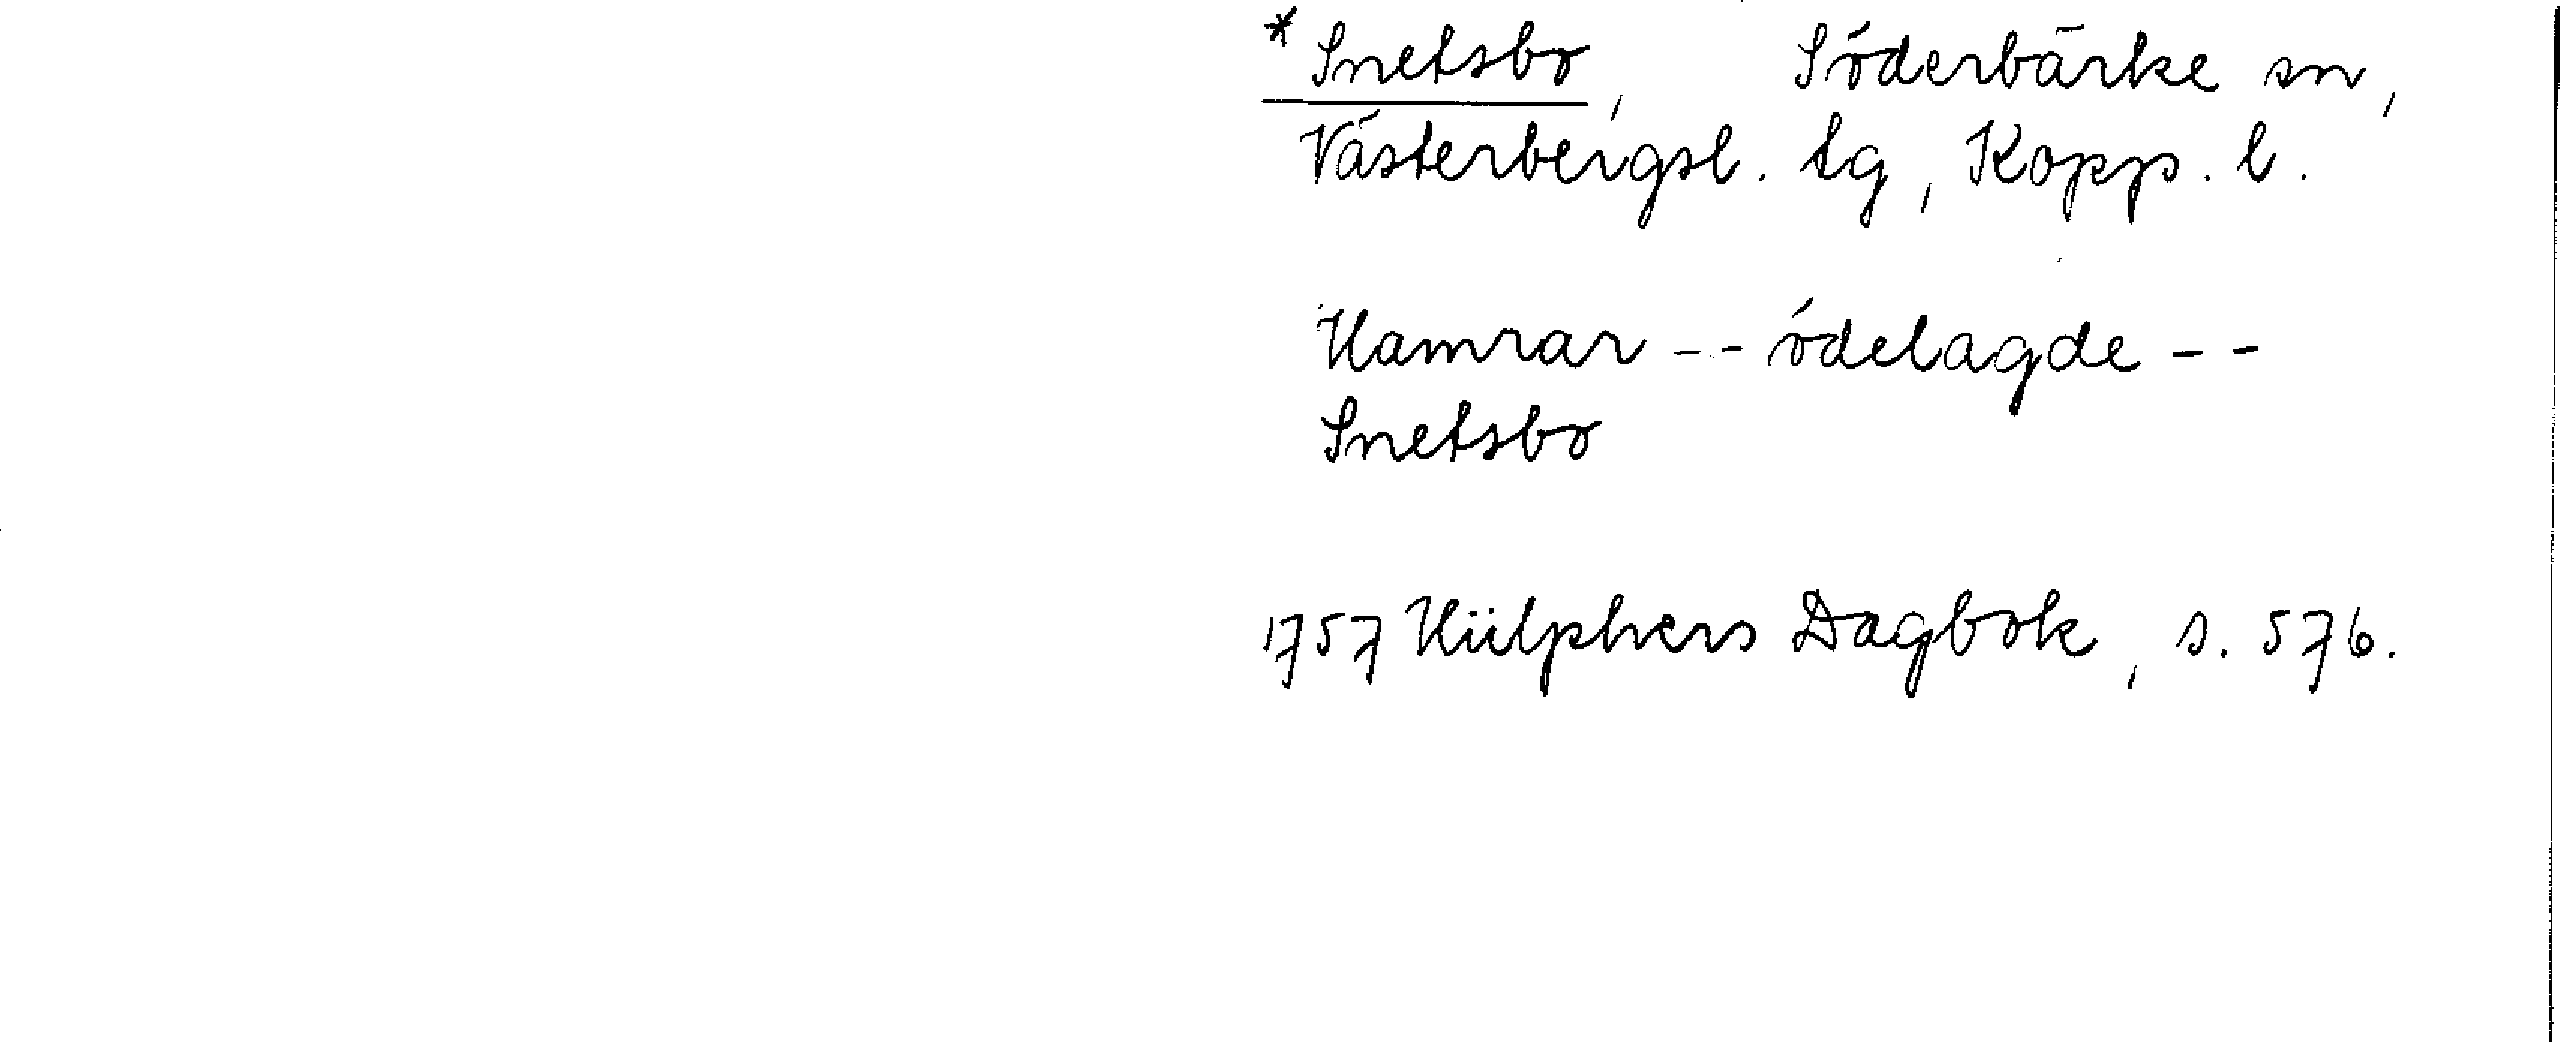 * Snetsbo, Söderbärke sn,
Västerbergsl. tg, Kopp. l.
Hamrar -- ödelagde --
Snetsbo
1757 Hülphers Dagbok, s. 576.